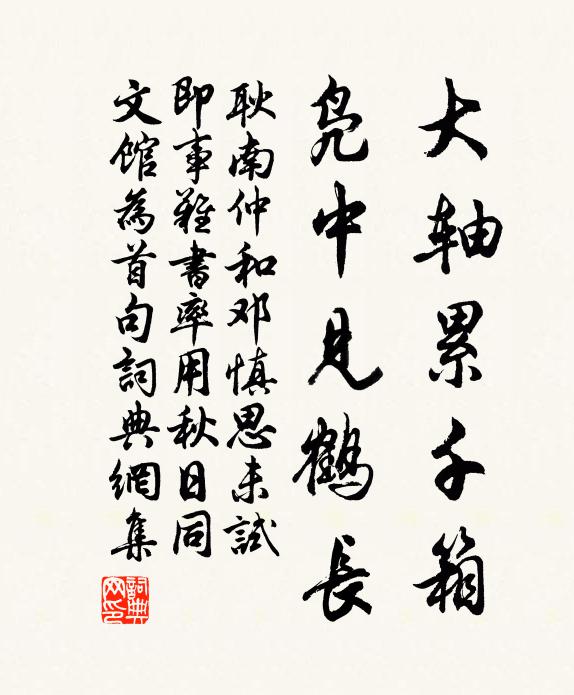 大轴累千箱
凫中见鹤長
耿南仲和邓慎思未試
即事難書率用秋日同
文馆為首句詞典網集
詞典網印